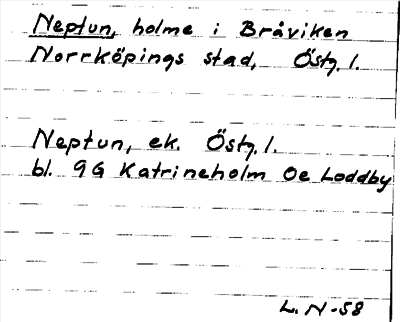 Neptun, holme i Bråviken
Norrköpings stad, Östg. l.
Neptun, ek. Östg. l.
bl. 9G Katrineholm Oe Loddby
L. N -58